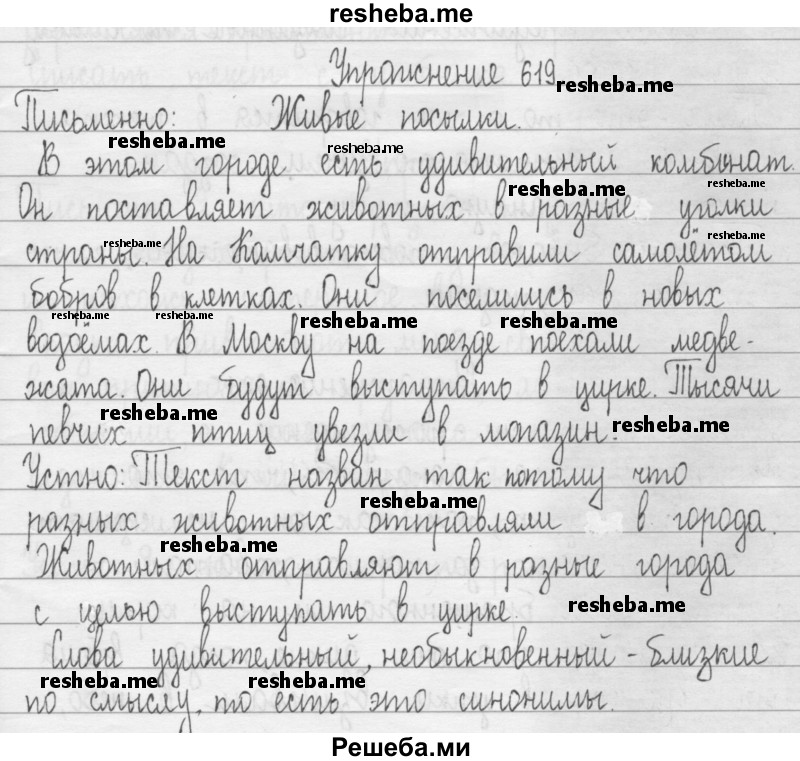 resheba.me
Упражнение 619 resheba.me
Письменно: Живые посылки.
resheba.me resheba.me
В этом городе есть удивительный комбинат.
resheba.me resheba.me
Он поставляет животных в разные уголки
resheba.me resheba.me
страны. На Камчатку отправили самолётом
бобров в клетках. Они поселились в новых
resheba.me resheba.me resheba.me resheba.me
водоёмах. В Москву на поезде поехали медве-
жата. Они будут выступать в цирке. Тысячи
resheba.me resheba.me
певчих птиц увезли в магазин.
Устно: Текст назван так потому что
resheba.me
разных животных отправляли в города.
resheba.me
Животных отправляют в разные города
с целью выступать в цирке. resheba.me
Слова удивительный, необыкновенный - близкие
resheba.me resheba.me
по смыслу, то есть это синонимы.
Решеба.ми